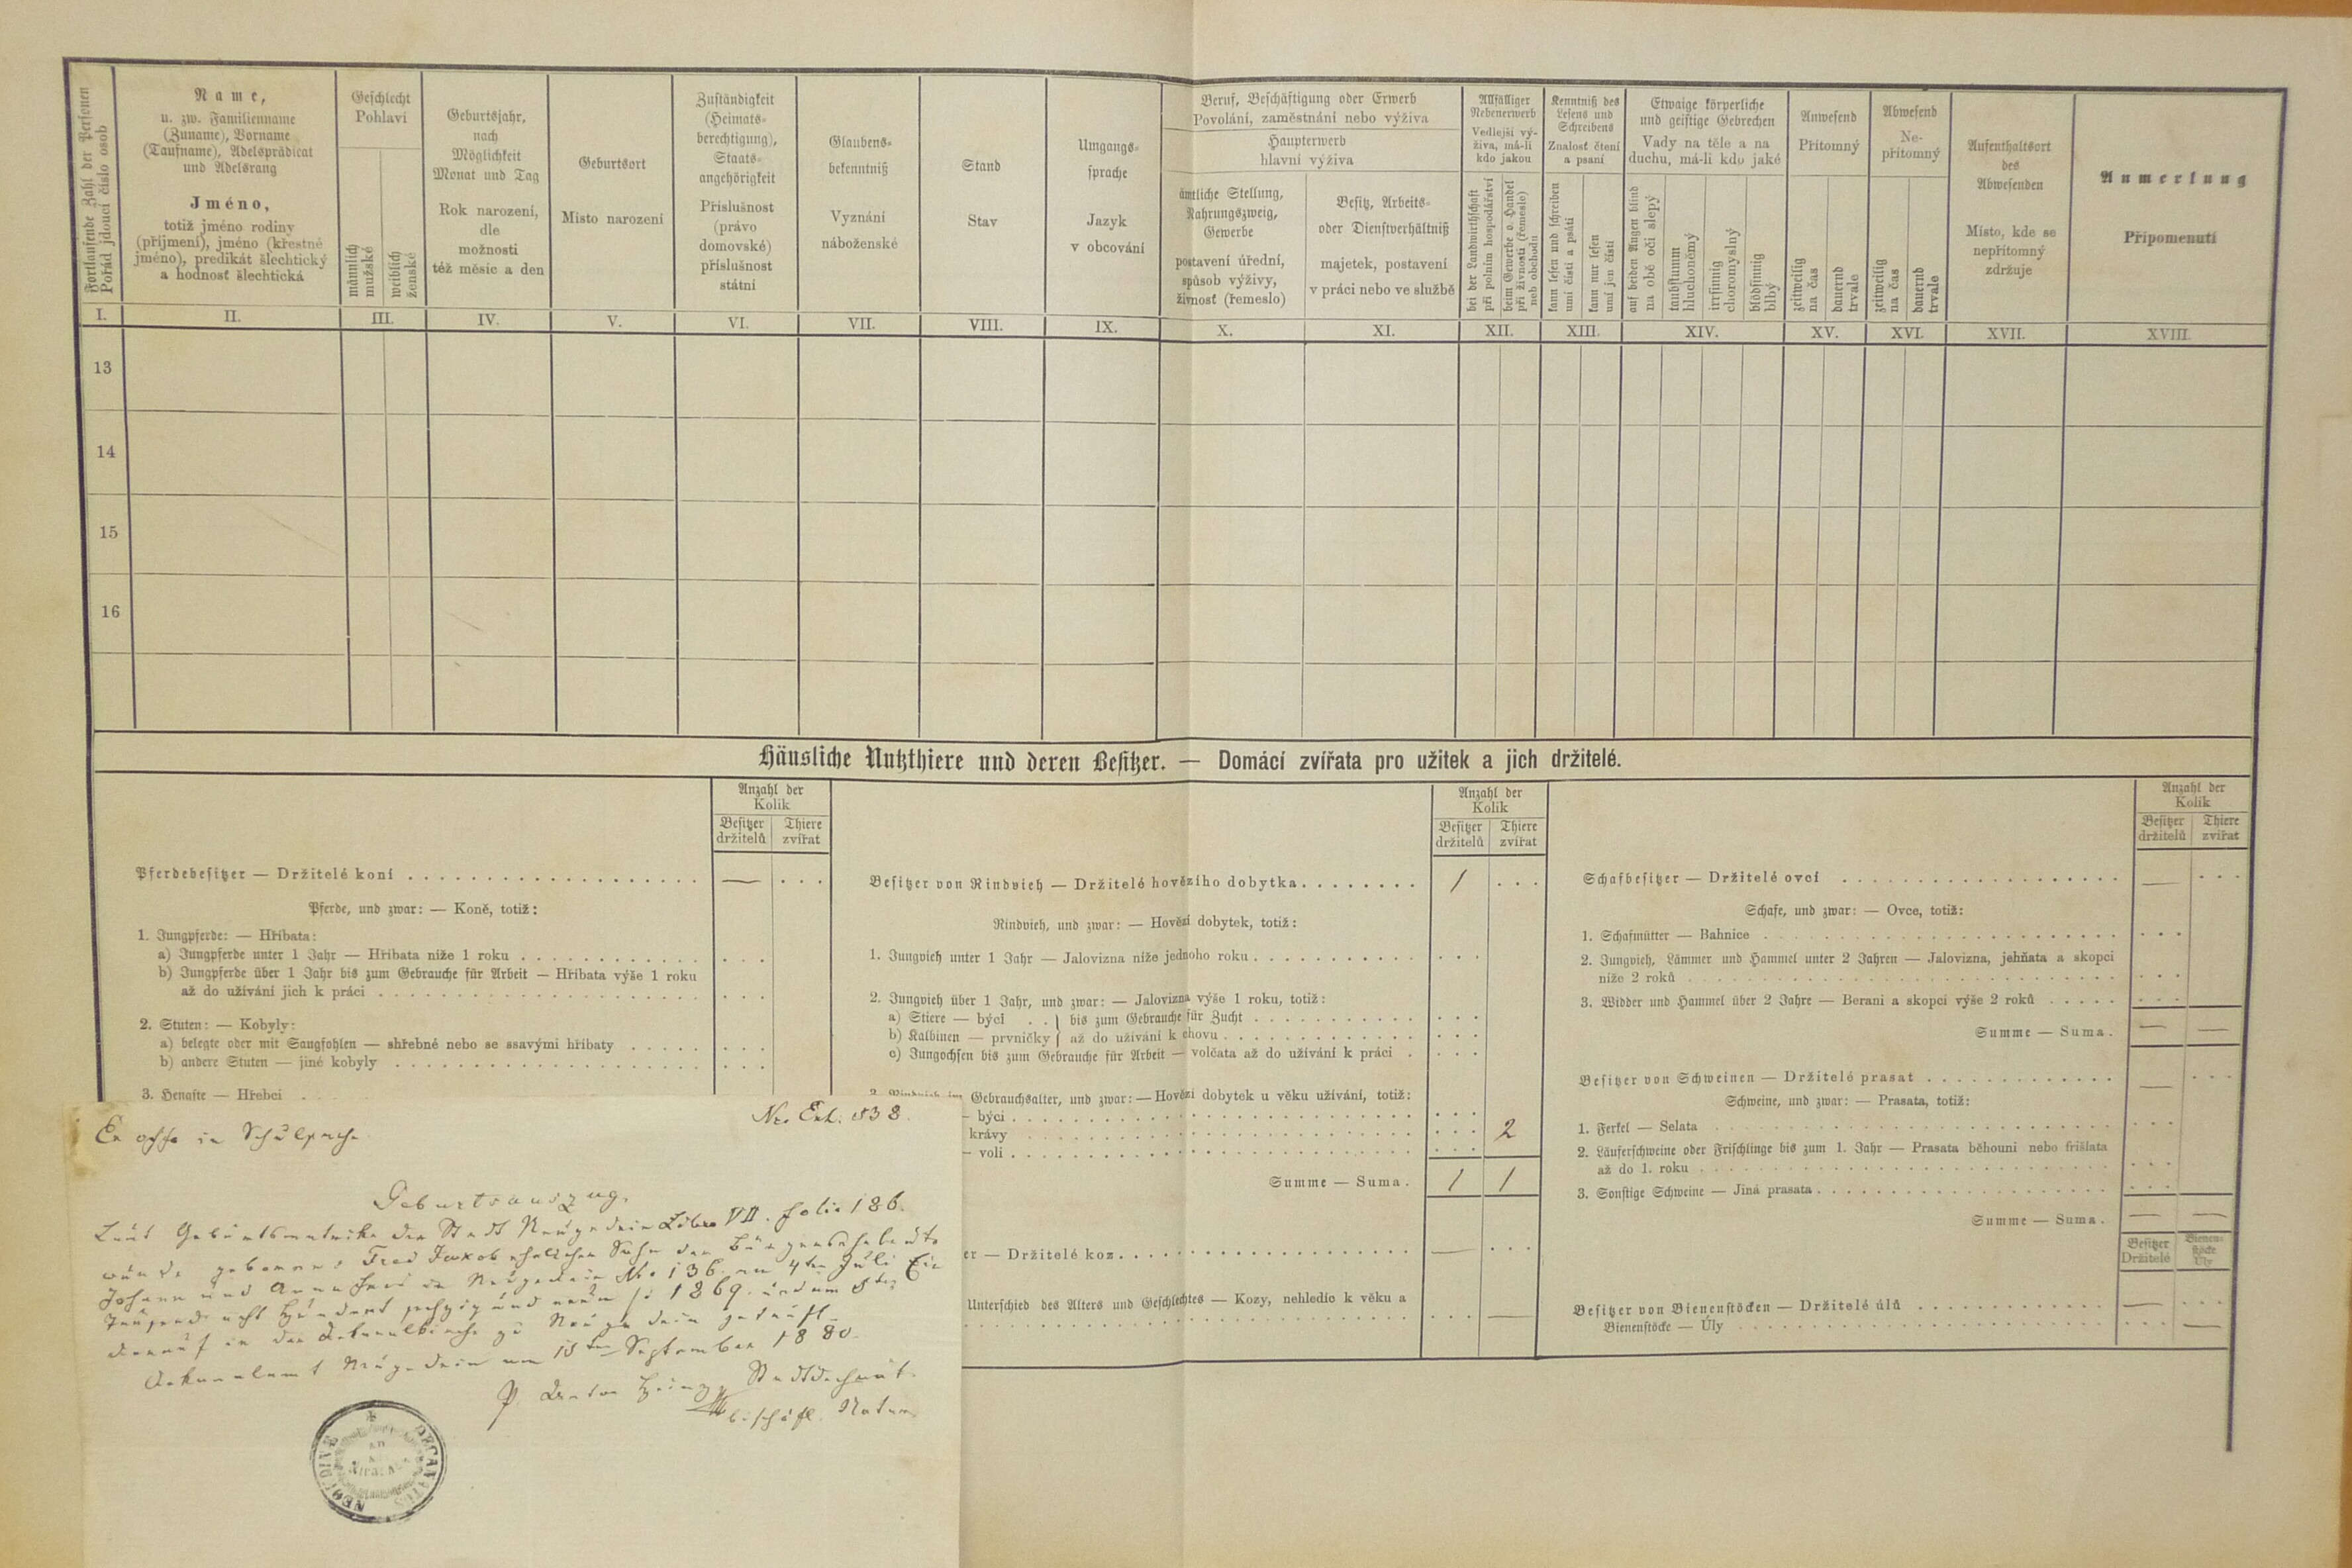 Fortlaufende Zahl der Personen
Pořád jdoucí číslo osob
I.
Name,
u. zw. Familienname
(Zuname), Vorname
(Taufname), Adelsprädicat
und Adelsrang
Jméno,
totiž jméno rodiny
(příjmení), jméno (křestné
jméno), predikát šlechtický
a hodnosť šlechtická
II.
Geschlecht
Pohlaví
männlich
mužské
weiblich
ženské
III.
Geburtsjahr,
nach
Möglichkeit
Monat und Tag
Rok narození,
dle
možnosti
též měsíc a den
IV.
Geburtsort
Místo narození
V.
Zuständigkeit
(Heimats-
berechtigung),
Staats-
angehörigkeit
Příslušnost
(právo
domovské)
příslušnost
státní
VI.
Glaubens-
bekenntniß
Vyznání
náboženské
VII.
Stand
Stav
VIII.
Umgangs-
sprache
Jazyk
v obcování
IX.
Beruf, Beschäftigung oder Erwerb
Povolání, zaměstnání nebo výživa
Haupterwerb
hlavní výživa
ämtliche Stellung,
Nahrungszweig,
Gewerbe
postavení úřední,
spůsob výživy,
živnosť (řemeslo)
X.
Besitz, Arbeits-
oder Dienstverhältniß
majetek, postavení
v práci nebo ve službě
XI.
Allfälliger
Nebenerwerb
Vedlejší vý-
živa, má-li
kdo jakou
bei der Landwirthschaft
při polním hospodářství
beim Gewerbe o. Handel
při živnosti (řemeslo)
neb obchodu
XII.
Kenntniß des
Lesens und
Schreibens
Znalosť čtení
a psaní
kann lesen und schreiben
umí čísti a psáti
kann nur lesen
umí jen čísti
XIII.
Etwaige körperliche
und geistige Gebrechen
Vady na těle a na
duchu, má-li kdo jaké
auf beiden Augen blind
na obě oči slepý
taubstumm
hluchoněmý
irrsinnig
choromyslný
blödsinnig
blbý
XIV.
Anwesend
Přítomný
zeitweilig
na čas
dauernd
trvale
XV.
Abwesend
Ne-
přítomný
zeitweilig
na čas
dauernd
trvale
XVI.
Aufenthaltsort
des
Abwesenden
Místo, kde se
nepřítomný
zdržuje
XVII.
Anmerkung
Připomenutí
XVIII.
13
14
15
16
Häusliche Nutzthiere und deren Besitzer. — Domácí zvířata pro užitek a jich držitelé.
Anzahl der
Kolik
Besitzer
držitelů
Thiere
zvířat
Pferdebesitzer — Držitelé koní — . . .
Pferde, und zwar: — Koně, totiž:
1. Jungpferde: — Hříbata:
a) Jungpferde unter 1 Jahr — Hříbata níže 1 roku
b) Jungpferde über 1 Jahr bis zum Gebrauche für Arbeit — Hříbata výše 1 roku
až do užívání jich k práci
2. Stuten: — Kobyly:
a) belegte oder mit Saugfohlen — shřebné nebo se ssavými hříbaty
b) andere Stuten — jiné kobyly
3. Hengste — Hřebci
Anzahl der
Kolik
Besitzer
držitelů
Thiere
zvířat
Besitzer von Rindvieh — Držitelé hovězího dobytka 1 . . .
Rindvieh, und zwar: — Hovězí dobytek, totiž:
1. Jungvieh unter 1 Jahr — Jalovizna níže jednoho roku
2. Jungvieh über 1 Jahr, und zwar: — Jalovizna výše 1 roku, totiž:
a) Stiere — býci . . } bis zum Gebrauche für Zucht
b) Kalbinen — prvničky } až do užívání k chovu
c) Jungochsen bis zum Gebrauche für Arbeit — volčata až do užívání k práci
Gebrauchsalter, und zwar: — Hovězí dobytek u věku užívání, totiž:
– býci
krávy 2
– voli
Summe — Suma. 1 1
er — Držitelé koz —
Unterschied des Alters und Geschlechtes — Kozy, nehledíc k věku a
—
Anzahl der
Kolik
Besitzer
držitelů
Thiere
zvířat
Schafbesitzer — Držitelé ovcí — . . .
Schafe, und zwar: — Ovce, totiž:
1. Schafmütter — Bahnice
2. Jungvieh, Lämmer und Hammel unter 2 Jahren — Jalovizna, jehňata a skopci
níže 2 roků
3. Widder und Hammel über 2 Jahre — Berani a skopci výše 2 roků
Summe — Suma. — —
Besitzer von Schweinen — Držitelé prasat — . . .
Schweine, und zwar: — Prasata, totiž:
1. Ferkel — Selata
2. Läuferschweine oder Frischlinge bis zum 1. Jahr — Prasata běhouni nebo frišlata
až do 1. roku
3. Sonstige Schweine — Jiná prasata
Summe — Suma. — —
Besitzer
Držitelé
Bienen-
stöcke
Úly
Besitzer von Bienenstöcken — Držitelé úlů — . . .
Bienenstöcke — Úly —
Nr. Exh. 838.
Ex offo in Schulsache
Geburtsauszug.
Laut Geburtsmatrike der Stadt Neugedein Libro VII. folio 186.
wurde geboren: Fred Jakob ehelicher Sohn der Bürgersleute
Johann und Anna in Neugedein No 136. am 4ten Juli Ein
Tausend acht Hundert sechzig und neun 1869. und am 5ten
darauf in der Dekanalkirche zu Neugedein getauft.
Dekanalamt Neugedein am 15ten September 1880.
P. Anton Stadtdechant.
bischöfl. Notar.
DECANATUS
NEOGDINE